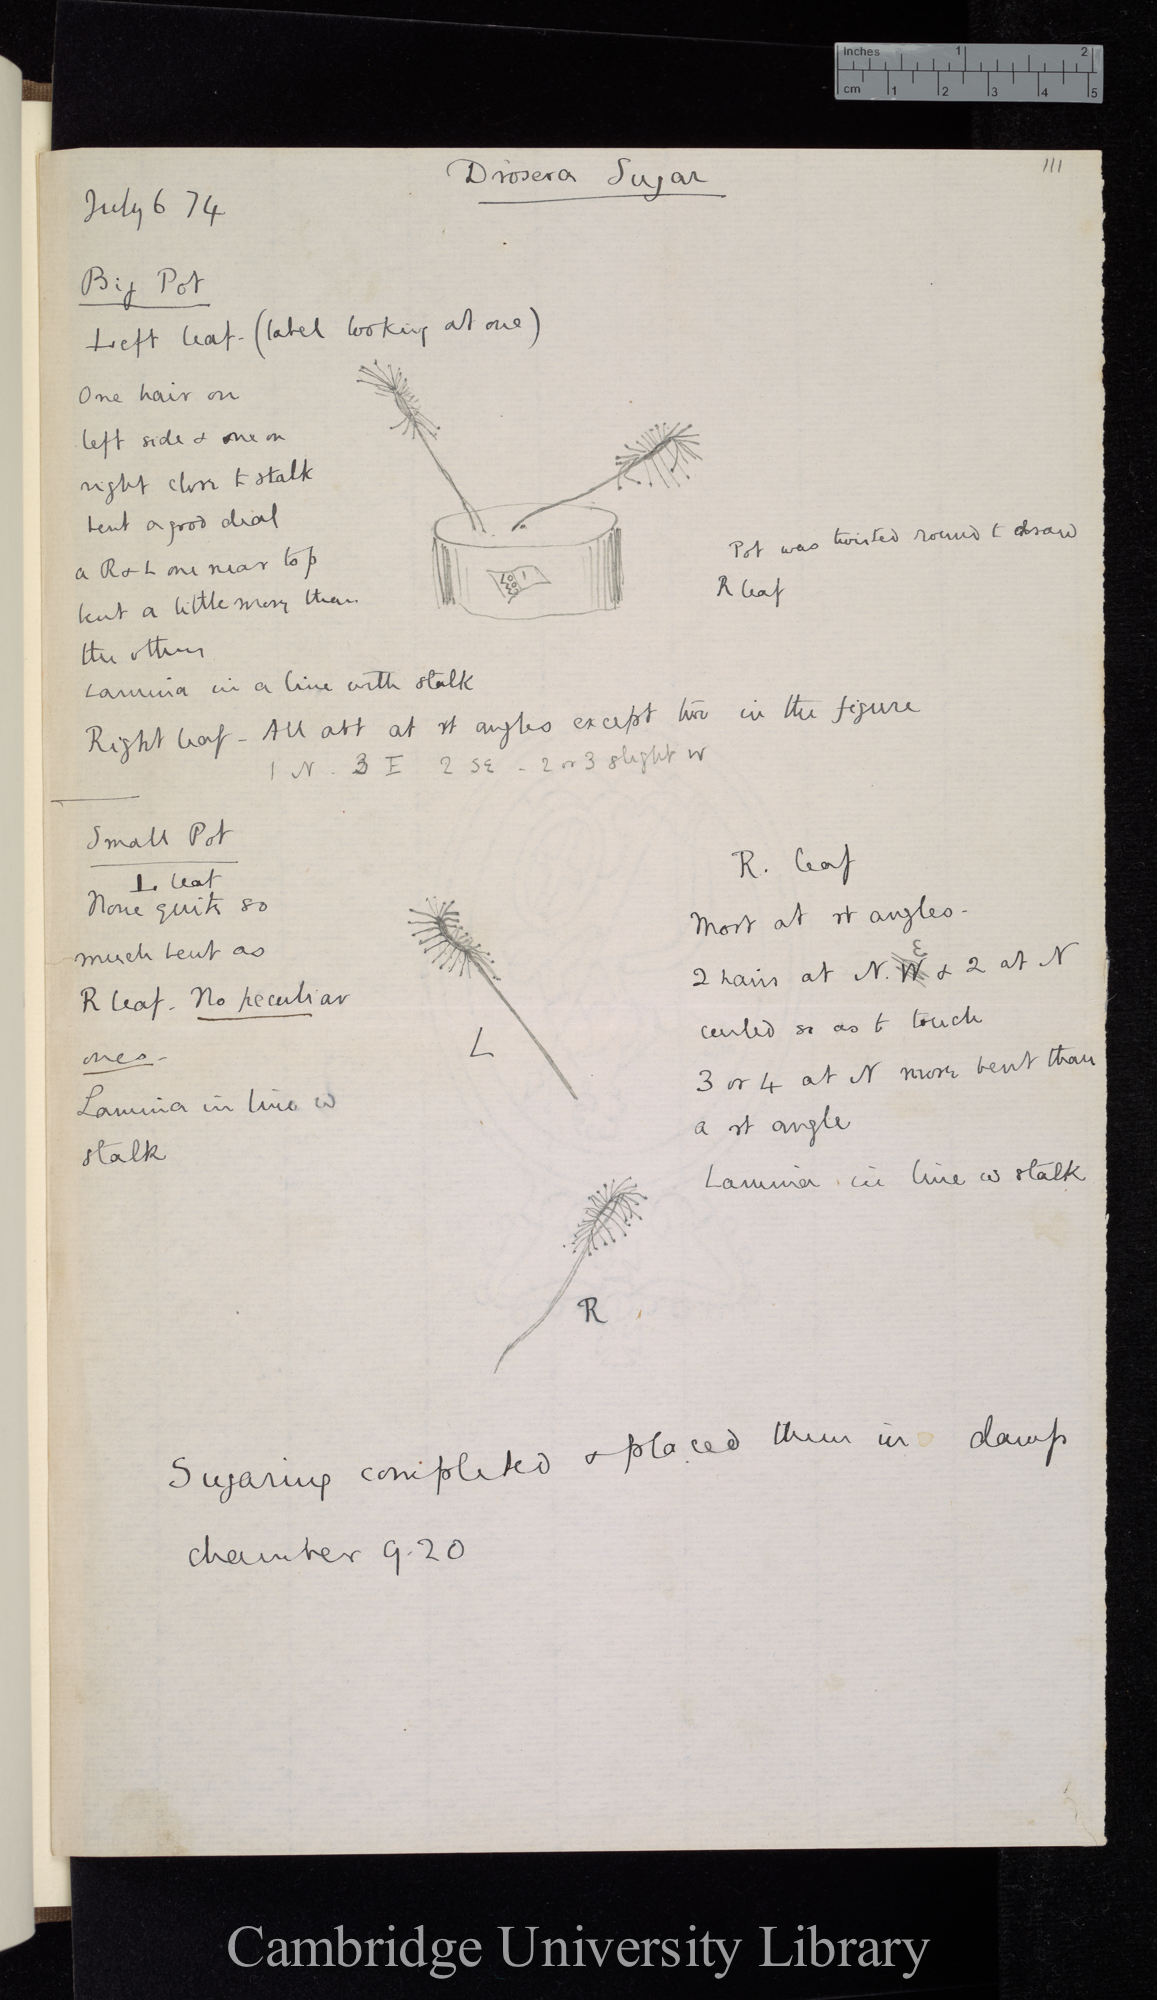 Inches 1 2
cm 1 2 3 4 5
111
Drosera Sugar
July 6 74
Big Pot
Left leaf - (label looking at one)
One hair on
left side & one on
right close to stalk
bent a good deal
a R & L one near top
bent a little more than
the others
Lamina in a line with stalk
Pot was twisted round to draw
R leaf
Right leaf - All abt at rt angles except two in the figure
1 N. 3 E 2 SE - 2 or 3 slight W
Small Pot
L leaf
None quite so
much bent as
R leaf - No peculiar
ones -
Lamina in line w
stalk
L
R. leaf
Most at rt angles -
2 hairs at N. W E & 2 at N
curled so as to touch
3 or 4 at N more bent than
a rt angle
Lamina in line w stalk
R
Sugaring completed & placed them in damp
chamber 9.20
Cambridge University Library